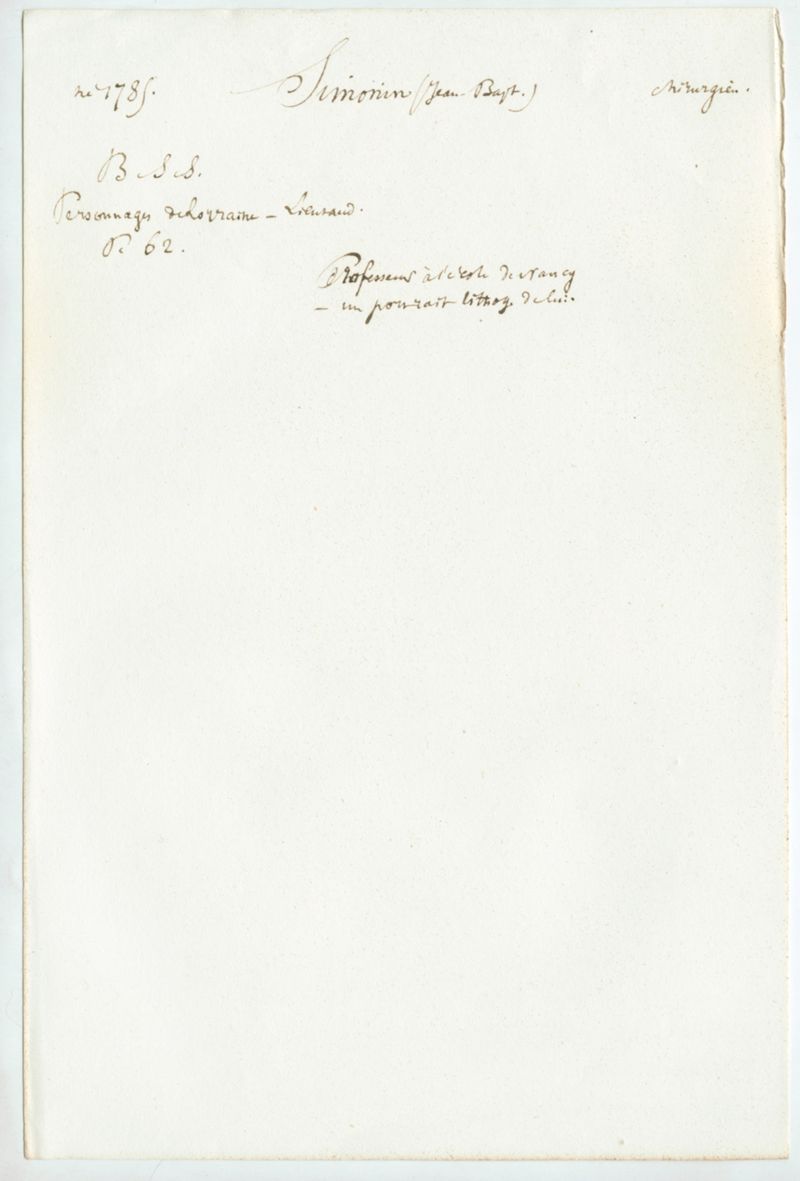 né 1785. Simonin (Jean-Bapt.) chirurgien.
B S S.
Personnages de Lorraine - Lieutaud.
P. 62.
Professeur à l'école de Nancy
- un portrait lithog. de lui.